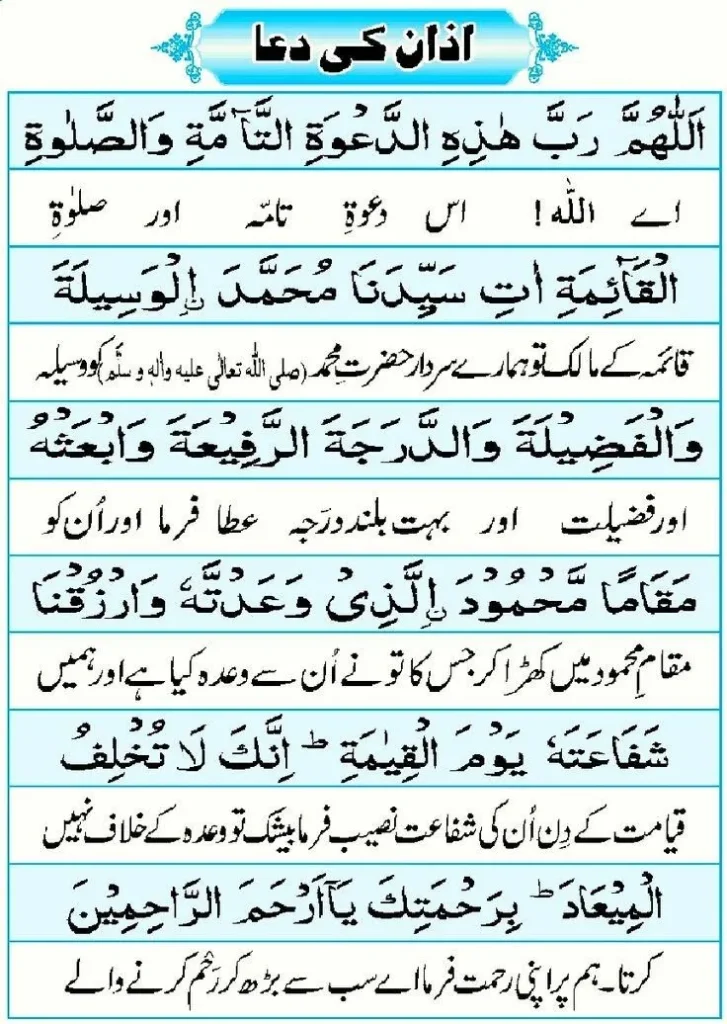 اذان کی دعا
اَللّٰهُمَّ رَبَّ هٰذِهِ الدَّعْوَةِ التَّآمَّةِ وَالصَّلٰوةِ
اے اللہ! اس دعوۃِ تامّہ اور صلوٰۃِ
الْقَآئِمَةِ اٰتِ سَيِّدَنَا مُحَمَّدَ نِ الْوَسِيْلَةَ
قائمہ کے مالک تو ہمارے سردار حضرت محمد (صلی اللہ تعالٰی علیہ واٰلہٖ و سلّم) کو وسیلہ
وَالْفَضِيْلَةَ وَالدَّرَجَةَ الرَّفِيْعَةَ وَابْعَثْهُ
اور فضیلت اور بہت بلند درَجہ عطا فرما اور اُن کو
مَقَامًا مَّحْمُوْدَ نِ الَّذِیْ وَعَدْتَّهٗ وَارْزُقْنَا
مقامِ محمود میں کھڑا کر جس کا تو نے اُن سے وعدہ کیا ہے اور ہمیں
شَفَاعَتَهٗ يَوْمَ الْقِيٰمَةِ ؕ اِنَّكَ لَا تُخْلِفُ
قیامت کے دِن اُن کی شفاعت نصیب فرما بیشک تو وعدہ کے خلاف نہیں
الْمِيْعَادَ ؕ بِرَحْمَتِكَ يَآ اَرْحَمَ الرَّاحِمِيْنَ
کرتا۔ ہم پر اپنی رحمت فرما اے سب سے بڑھ کر رَحْم کرنے والے